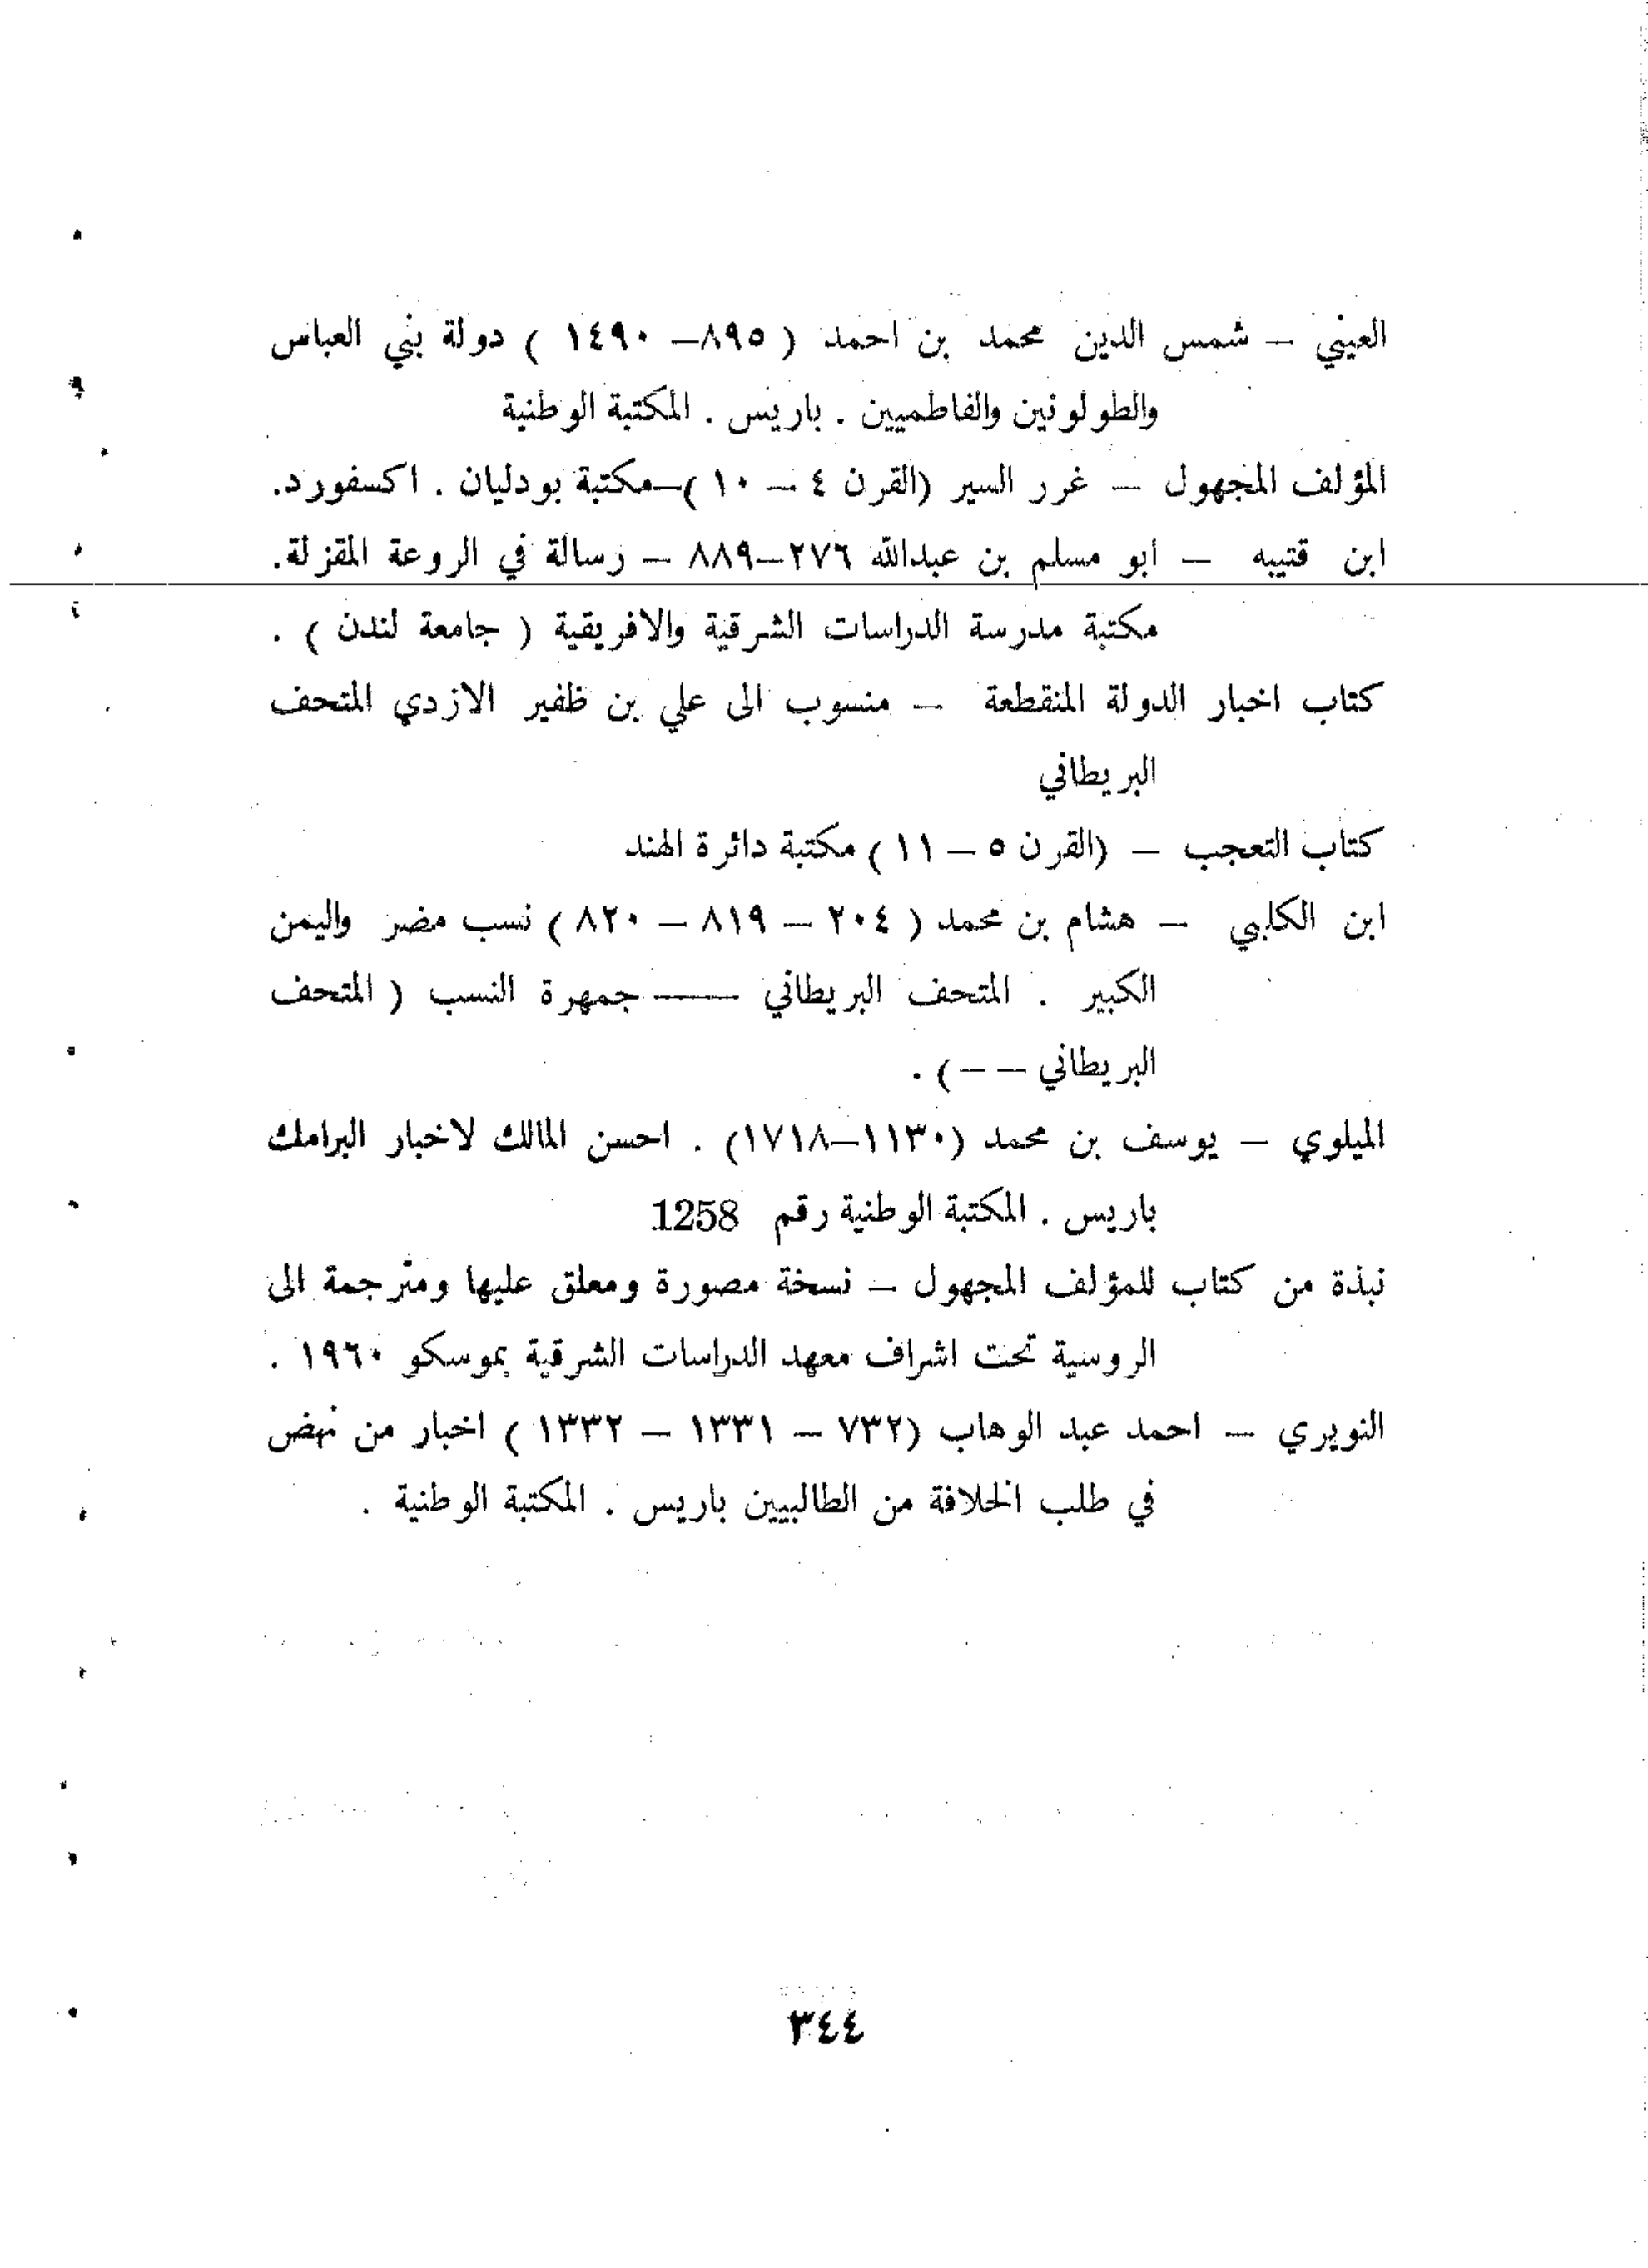 العيني – شمس الدين محمد بن احمد ( ٨٩٥– ١٤٩٠ ) دولة بني العباس
والطولونين والفاطميين . باريس . المكتبة الوطنية
المؤلف المجهول – غرر السير (القرن ٤ – ١٠ )–مكتبة بودليان . اكسفورد.
ابن قتيبه – ابو مسلم بن عبدالله ٢٧٦–٨٨٩ – رسالة في الروعة المقزلة.
مكتبة مدرسة الدراسات الشرقية والافريقية ( جامعة لندن ) .
كتاب اخبار الدولة المنقطعة – منسوب الى علي بن ظفير الازدي المتحف
البريطاني
كتاب التعجب – (القرن ٥ – ١١ ) مكتبة دائرة الهند
ابن الكلبي – هشام بن محمد ( ٢٠٤ – ٨١٩ – ٨٢٠ ) نسب مضر واليمن
الكبير . المتحف البريطاني —— جمهرة النسب ( المتحف
البريطاني – – ) .
الميلوي – يوسف بن محمد (١١٣٠–١٧١٨) . احسن المالك لاخبار البرامك
باريس . المكتبة الوطنية رقم 1258
نبذة من كتاب للمؤلف المجهول – نسخة مصورة ومعلق عليها ومترجمة الى
الروسية تحت اشراف معهد الدراسات الشرقية بموسكو ١٩٦٠ .
النويري – احمد عبد الوهاب (٧٣٢ – ١٣٣١ – ١٣٣٢ ) اخبار من نهض
في طلب الخلافة من الطالبيين باريس . المكتبة الوطنية .
٣٤٤